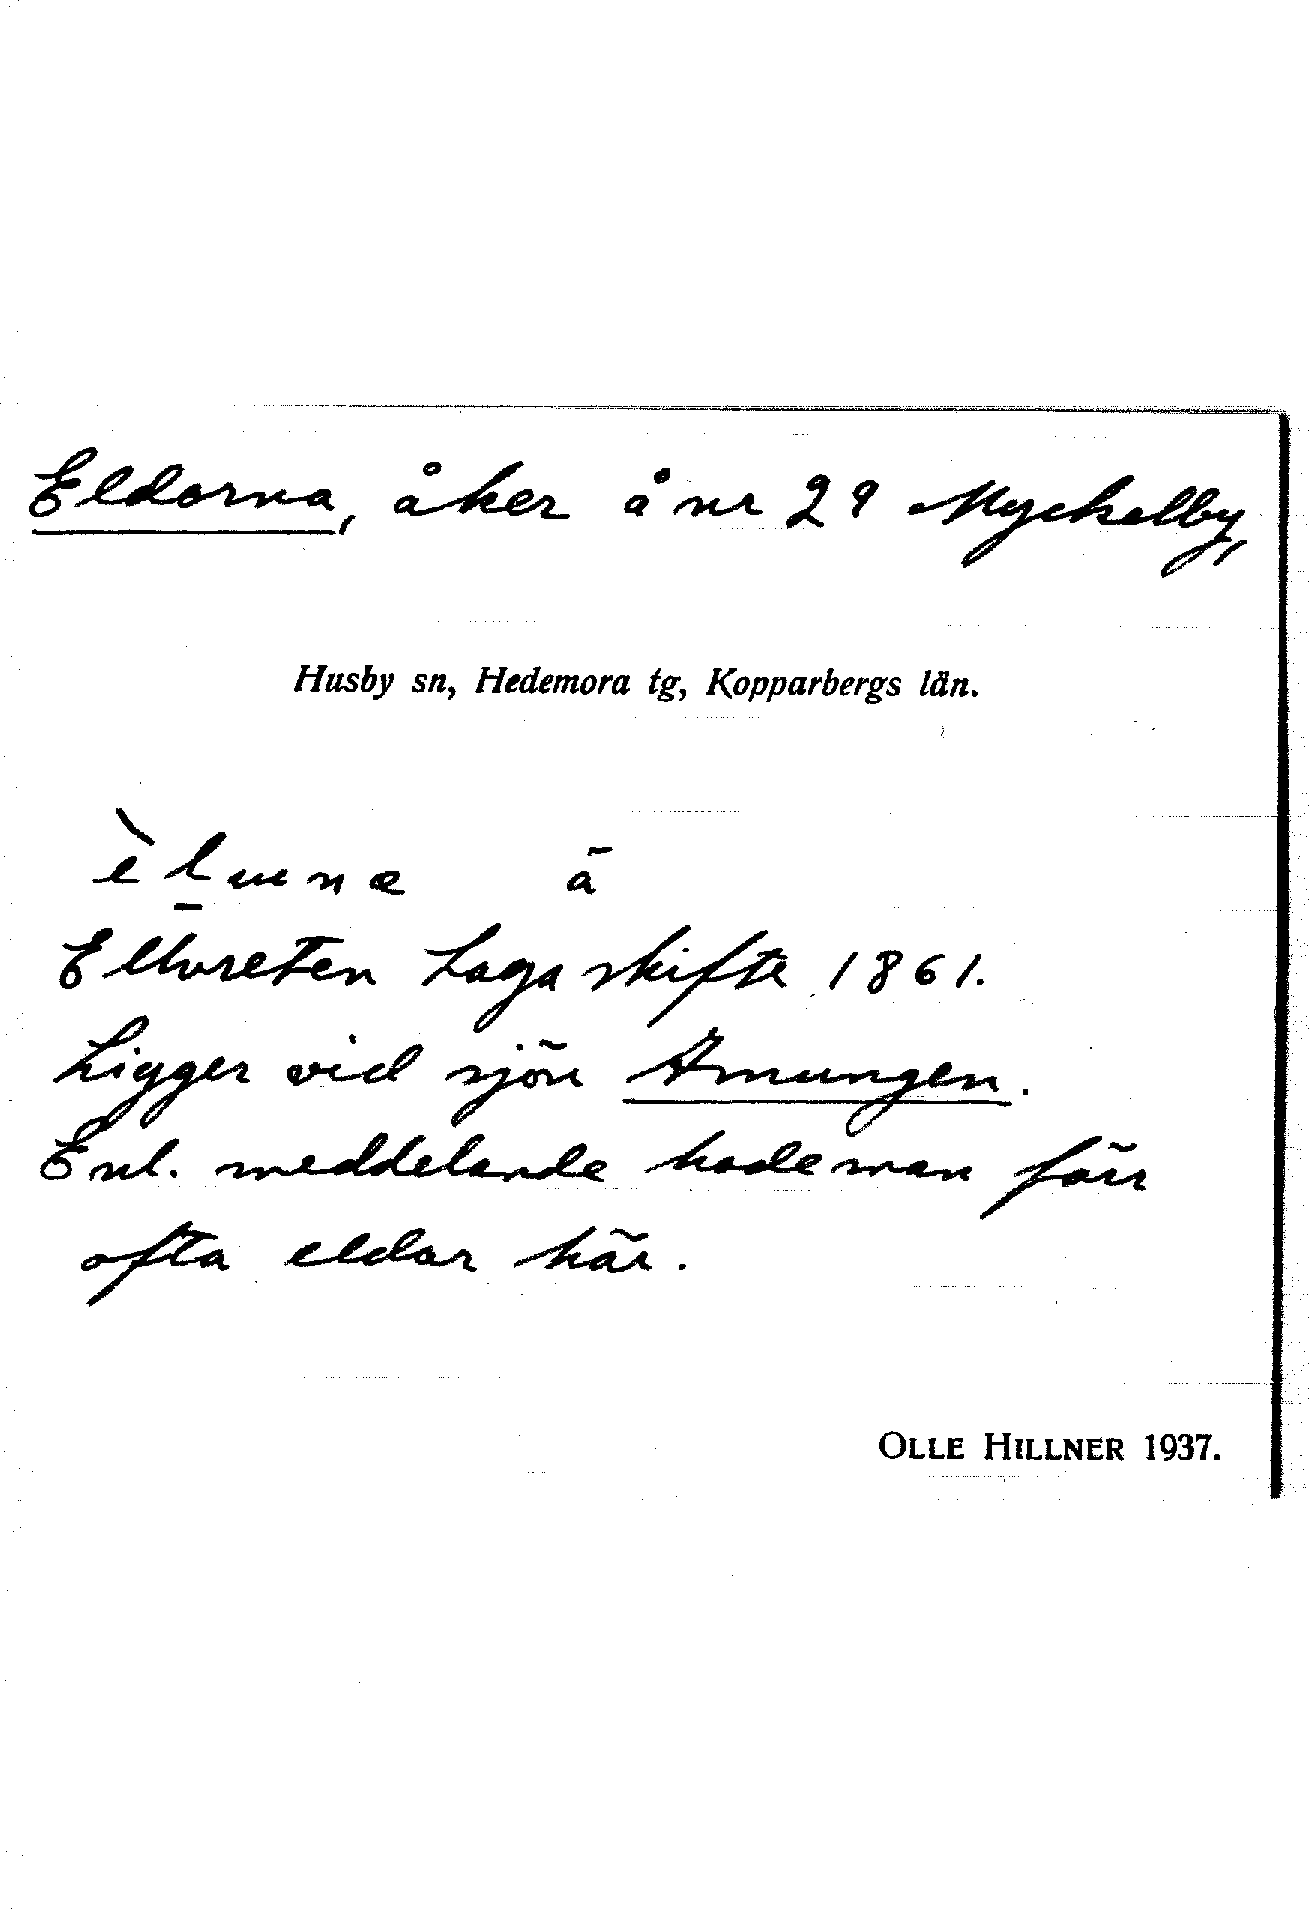 Eldorna, åker å nr 29 Myckelby,
Husby sn, Hedemora tg, Kopparbergs län.
ā
Laga skifte 1861.
Ligger vid sjön Amungen.
Enl. meddelande hade man förr
ofta eldar här.
OLLE HILLNER 1937.